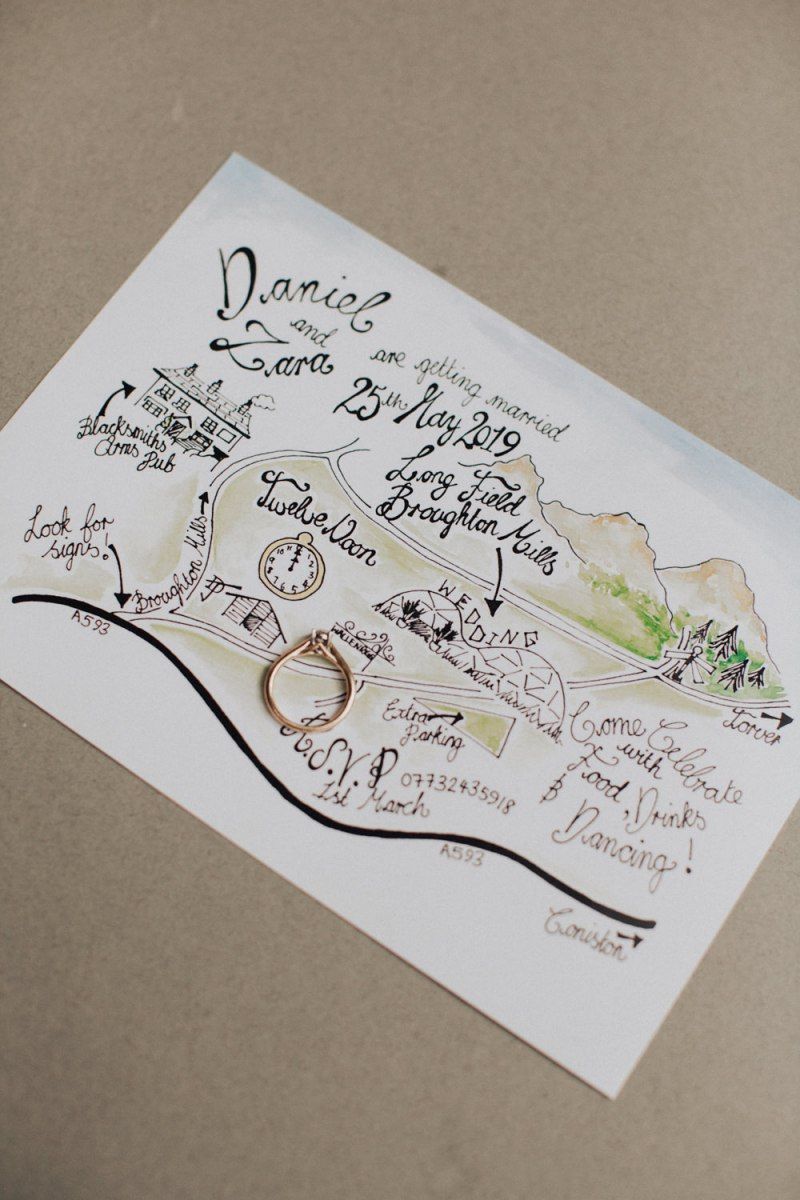 Daniel
and
Zara
are getting married
25th May 2019
Blacksmiths
Arms Pub
Long Field
Broughton Mills
Twelve Noon
Look for
signs!
Broughton Mills
A593
WEDDING
Extra
Parking
Torver
R.S.V.P 07732435918
1st March
Come Celebrate
with
Food, Drinks
& Dancing!
A593
Coniston